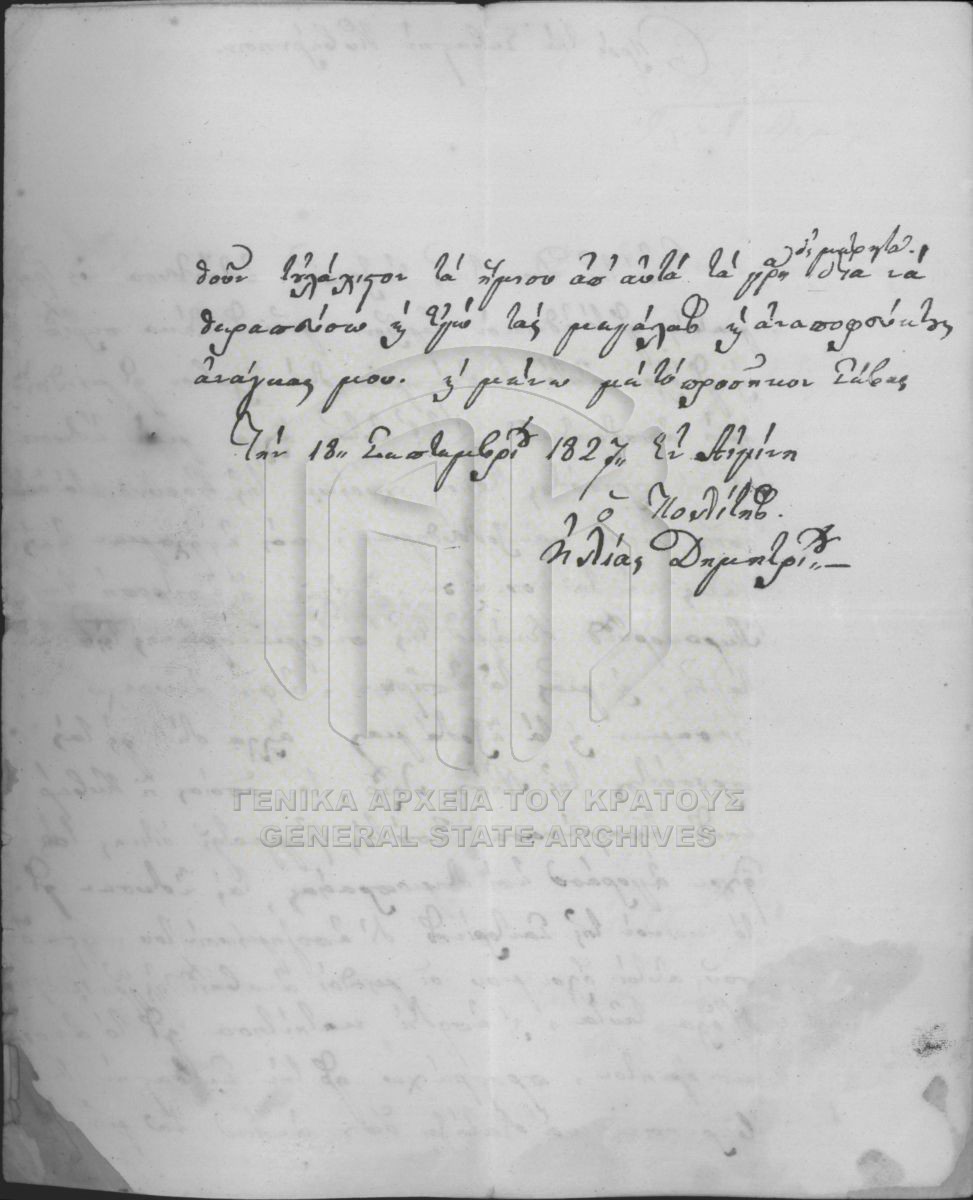 θοῦν τοὐλάχιστον τὰ ἥμισυ ἀπ' αὐτὰ τὰ γρ: διὰ νὰ
θεραπεύσω κ ἐγὼ τὰς μεγάλας κ ἀναποφεύκτους
ἀνάγκας μου. κ μένω μὲ τὸ προσῆκον σέβας
Τὴν 18,, Σεπτεμβρίου 1827,, Ἐν Αἰγίνῃ
ὁ Πολίτης.
Ἠλίας Δημητρίου,,—
ΓΕΝΙΚΑ ΑΡΧΕΙΑ ΤΟΥ ΚΡΑΤΟΥΣ
GENERAL STATE ARCHIVES